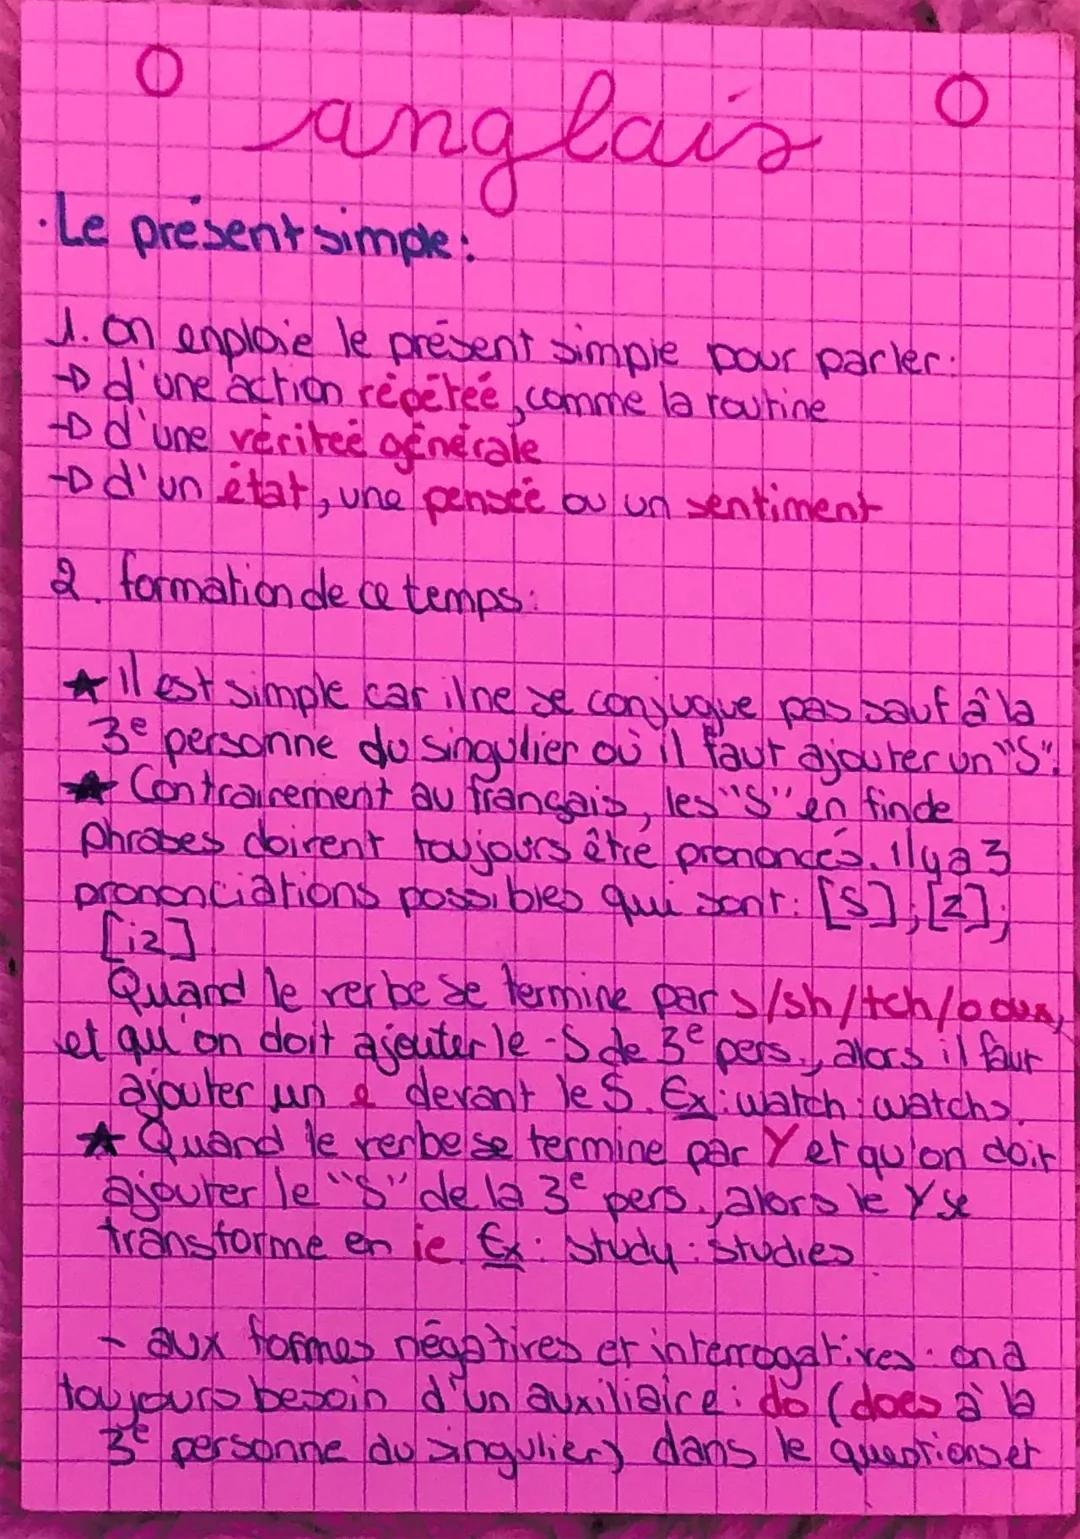 anglais
. Le présent simple :
1. On enploie le présent simple pour parler :
→ d'une action répéteé, comme la routine
→ d'une vériteé générale
→ d'un état, une penseé ou un sentiment
2. formation de ce temps :
★ Il est simple car il ne se conjugue pas sauf à la
3e personne du singulier où il faut ajouter un "S".
★ Contrairement au français, les "S" en fin de
phrases doivent toujours être prononcés. Il y a 3
prononciations possibles qui sont : [S] ; [Z] ;
[iz]
Quand le verbe se termine par s/sh/tch/o ou x,
et qu'on doit ajouter le -S de 3e pers., alors il faut
ajouter un e devant le S. Ex : watch : watchs
★ Quand le verbe se termine par Y et qu'on doit
ajouter le "S" de la 3e pers., alors le Y se
transforme en ie Ex : study : studies
- aux formes négatives et interrogatives : on a
toujours besoin d'un auxiliaire : do (does à la
3e personne du singulier) dans le questions et